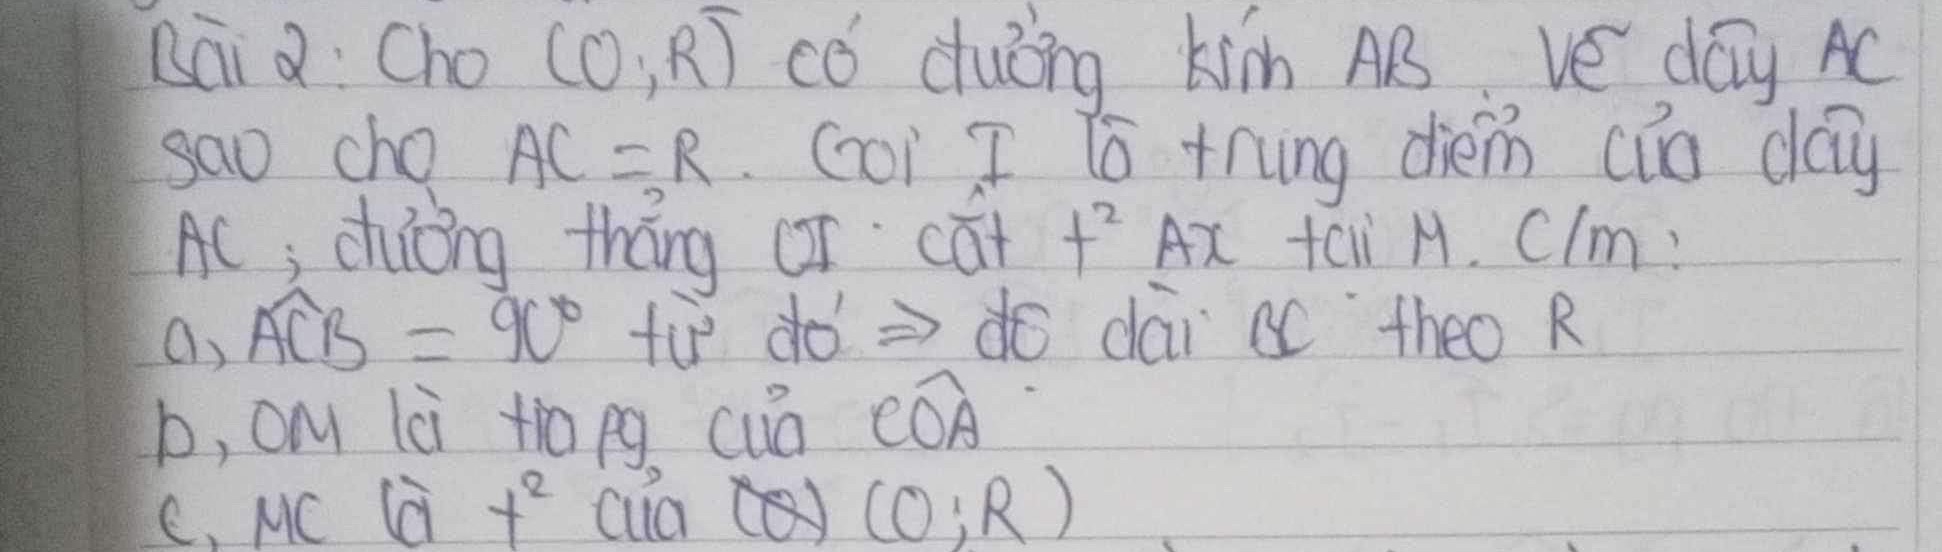 Bài 2: Cho (O;R) có đường kính AB. Vẽ dây AC
sao cho AC = R. Gọi I là trung điểm của dây
AC; đường thẳng OI cắt t² Ax tại M. C/m:
a, ACB = 90° từ đó => độ dài BC theo R
b, OM là tia pg của COA
c, MC là t² của (O;R)